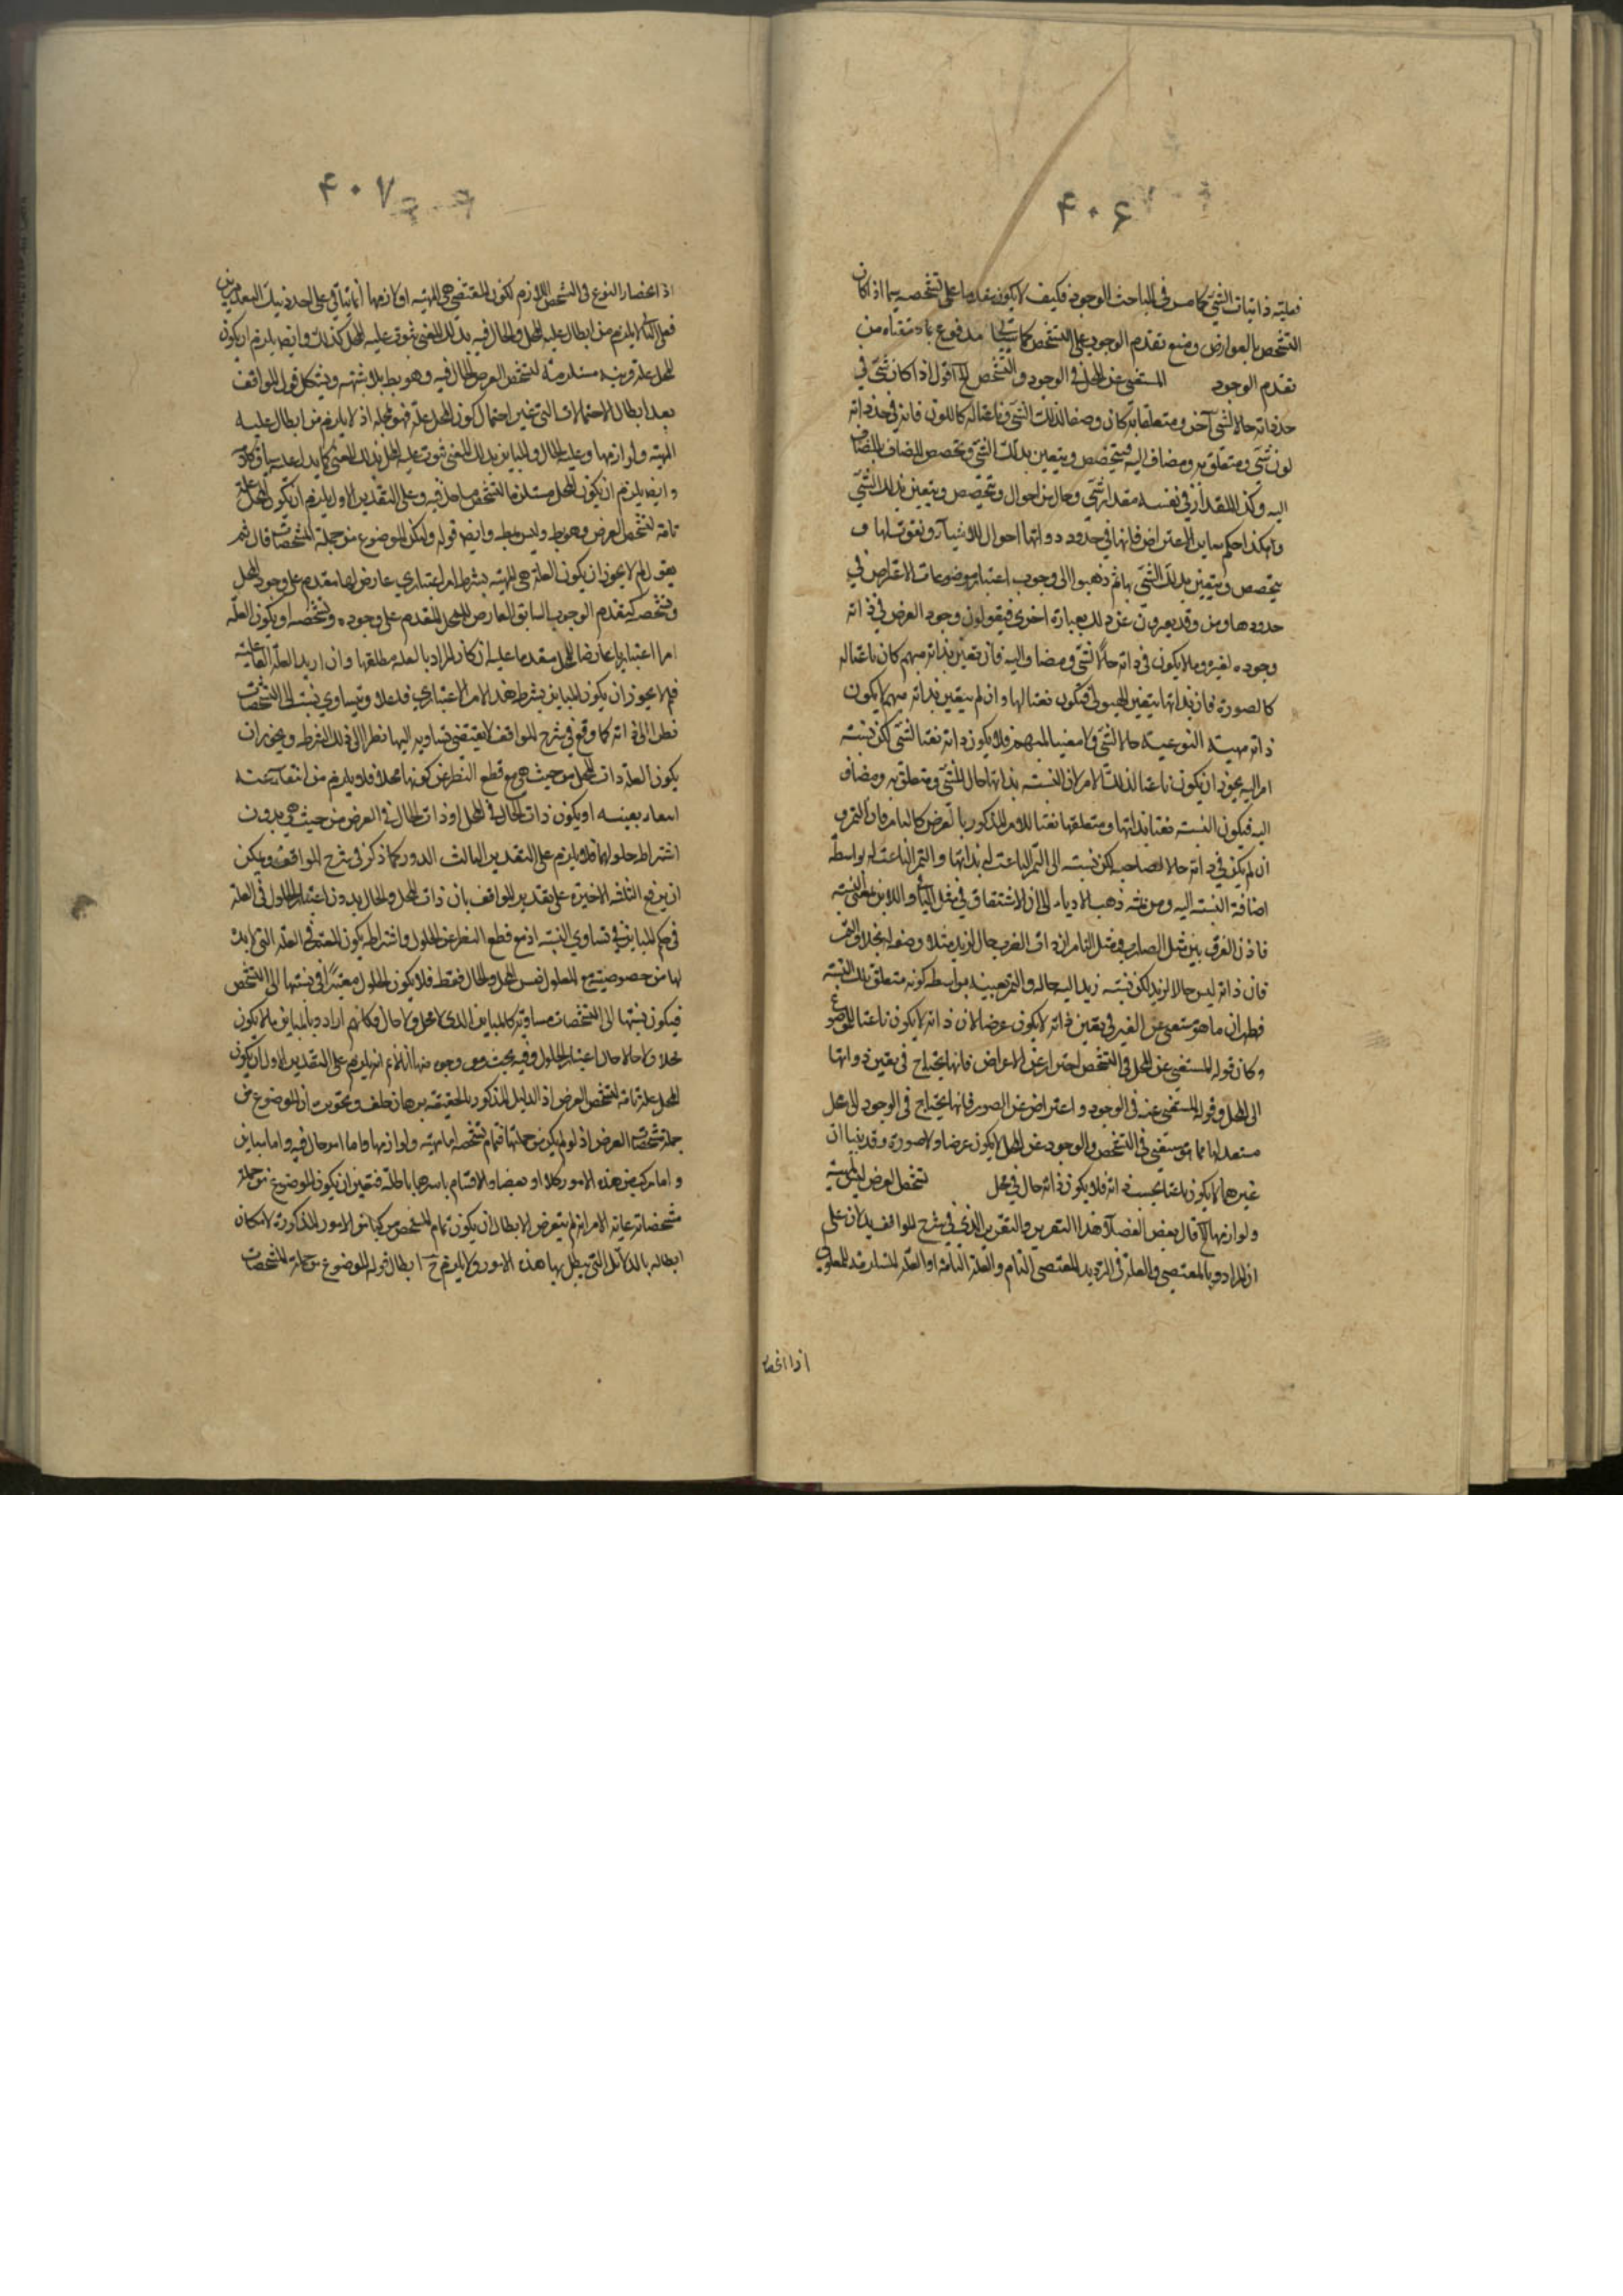 ۴۰۶
فعلية ذاتيات الشئ كما مر في المباحث الوجود فكيف لا يكون مقدما على تشخصه سيما اذا كان
التشخص بالعوارض ومنع تقدم الوجود على التشخص كما سيجئ مدفوع بما حققناه من
تقدم الوجود المستغنى عن المحل في الوجود والتشخص الخ اقول اذا كان شئ في
حد ذاته حالا لشئ آخر ومتعلقا به كان وصفا لذلك الشئ وناعتا له كاللون فانه في حد ذاته
لون شئ ومتعلق به ومضاف اليه فيتخصص ويتعين بذلك الشئ تخصص المضاف بالمضاف
اليه وكذا المقدار في نفسه مقدار شئ وحال من احوال ويتخصص ويتعين بذلك الشئ
وهكذا حكم ساير الاعراض فانها في حدود ذواتها احوال للاشياء ونعوت لها و
يتخصص ويتعين بذلك الشئ بها ثم ذهبوا الى وجوب اعتبار موضوعات الاعراض في
حدودها ومن وقد يعبرون عن ذلك بعبارة اخرى فيقولون وجود العرض في ذاته
وجوده لغيره وما لا يكون في ذاته حالا لشئ ومضاف اليه فان تعين بذاته مبهم كان ناعتا له
كالصورة فان بذاتها يتعين الهيولى فتكون نعتا لها وان لم يتعين بذاته مبهم لا يكون
ذاته مهيته النوعية حالا لشئ ولا معينا لمبهم فلا يكون ذاته نعتا لشئ لكن نسبته
امر اليه يجوز ان يكون ناعتا لذلك الامر لان النسبة بذاتها حال لشئ ومتعلق به ومضاف
اليه فيكون النسبة نعتا بذاتها ومتعلقها نعتا للامر المذكور بالعرض كالتامر فان التمر و
ان لم يكن في ذاته حالا لصاحبه لكن نسبته الى التمر الناعت له بذاتها والتمر الناعت له بواسطة
اضافة النسبة اليه ومن ثمة ذهب الادباء الى ان الاشتقاق في مثل التامر واللابن بمعنى النسبة
فاذن الفرق بين مثل الضارب ومثل التامر ان ذات الضرب حال لزيد مثلا وصفة له بخلاف التمر
فان ذاته ليس حالا لزيد لكن نسبة زيد اليه حاله والتمر بواسطة كونه متعلق تلك النسبة
فظهر ان ما هو مستغنى عن الغير في تعين ذاته لا يكون عرضا لان ذاته لا يكون ناعتا للموضوع
وكان قوله المستغنى عن المحل في التشخص احتراز عن الاعراض فانها يحتاج في تعين ذواتها
الى المحل وقوله المستغنى عنه في الوجود واعتراض عن الصور فانها يحتاج في الوجود الى محل
مستعد لها فما هو مستغنى في التشخص والوجود عن المحل لا يكون عرضا ولا صورة وقد بينا ان
غيرهما لا يكون ناعتا بحسب ذاته فلا يكون ذاته حال في محل تشخص العرض ليس لمهيته
ولوازمها الخ قال بعض الفضلاء هذا التقرير والتقرير الذي في شرح المواقف يدلان على
ان المراد بالمقتضى والعلة في الترديد المقتضى التام والعلة التامة او العلة المستلزمة للمعلول
اذا انحصار
۴۰۷
اذ انحصار النوع في الشخص اللازم لكون المقتضى هي المهية او لازمها انما يتأتى على احد ذينك التقديرين
فعلى الثاني لا يلزم من ابطال علية المحل والحال فيه بذلك المعنى ثبوت علية المحل كذلك وايضا يلزم ان يكون
المحل علة مستلزمة لتشخص العرض الحال فيه وهو بط بلا شبهة ويشكل قول المواقف
بعد ابطال الاحتمالات التي غير احتمال كون المحل علة فهو محله اذ لا يلزم من ابطال علية
المهية ولوازمها وعلية الحال والمباين بذلك المعنى ثبوت علية المحل بذلك المعنى كما يدل عليه سياق كلامه
وايضا يلزم ان يكون المحل مستلزما لتشخص ما حل فيه وعلى التقدير الاول يلزم ان يكون المحل علة
تامة لتشخص العرض وهو بط وليس بمط وايضا قوله وليكن الموضوع من جملة المشخصات قال ثم
بقي لم لا يجوز ان يكون العلة هي المهية بشرط امر اعتباري عارض لها مقدم على وجود المحل
وتشخصه كتقدم الوجوب السابق العارض للمحل المقدم على وجوده وتشخصه او يكون العلة
امرا اعتباريا عارضا للمحل مقدما عليه ان كان المراد بالعلة مطلقها وان اريد العلة الفاعلية
فلم لا يجوز ان يكون المباين بشرط هذا الامر الاعتباري فاعلا وتساوي نسبته الى المشخصات
نظرا الى ذاته كما وقع في شرح المواقف لا يقتضي تساويه اليها نظرا الى ذلك الشرط ويجوز ان
يكون العلة ذات المحل من حيث هي مع قطع النظر عن كونها محلا فلا يلزم من انتفاء
بعينه او يكون ذات الحال في المحل او ذات الحال في العرض من حيث هي بدون
اشتراط حلولهما فلا يلزم على التقدير الثالث الدور كما ذكر في شرح المواقف ويمكن
ان يدفع الثلثة الاخيرة على تقدير المواقف بان ذات المحل والحال بدون اعتبار الحلول في العلة
في حكم المباين في تساوي النسبة اذ مع قطع النظر عن الحلول واشتراطه يكون المعتبر في العلة التي لا بد
لها من خصوصية مع المعلول نفس المحل والحال فقط فلا يكون الحلول معتبرا في نسبتها الى التشخص
فيكون نسبتها الى التشخصات مساوية كالمباين الذي لا محل ولا حال فكانهم ارادوا بالمباين ما لا يكون
محلا ولا حالا حال اعتبار الحلول وفيه بحث من وجوه منها انا لا نم انه يلزم على التقدير الاول ان يكون
المحل علة تامة لتشخص العرض اذ الدليل المذكور بالحقيقة برهان خلف وتحريره ان الموضوع من
جملة مشخصات العرض اذ لو لم يكن من جملتها فتمام تشخصه اما مهيته ولوازمها واما امر حال فيه واما مباين
واما مركب من هذه الامور كلا او بعضا والاقسام باسرها باطلة فتعين ان يكون الموضوع من جملة
مشخصاته غاية الامر انه لم يتعرض لابطال ان يكون تمام المشخص مركبا من الامور المذكورة لامكان
ابطاله بالدلائل التي يبطل بها هذه الامور ولا يلزم ح ابطال قوله الموضوع من جملة المشخصات